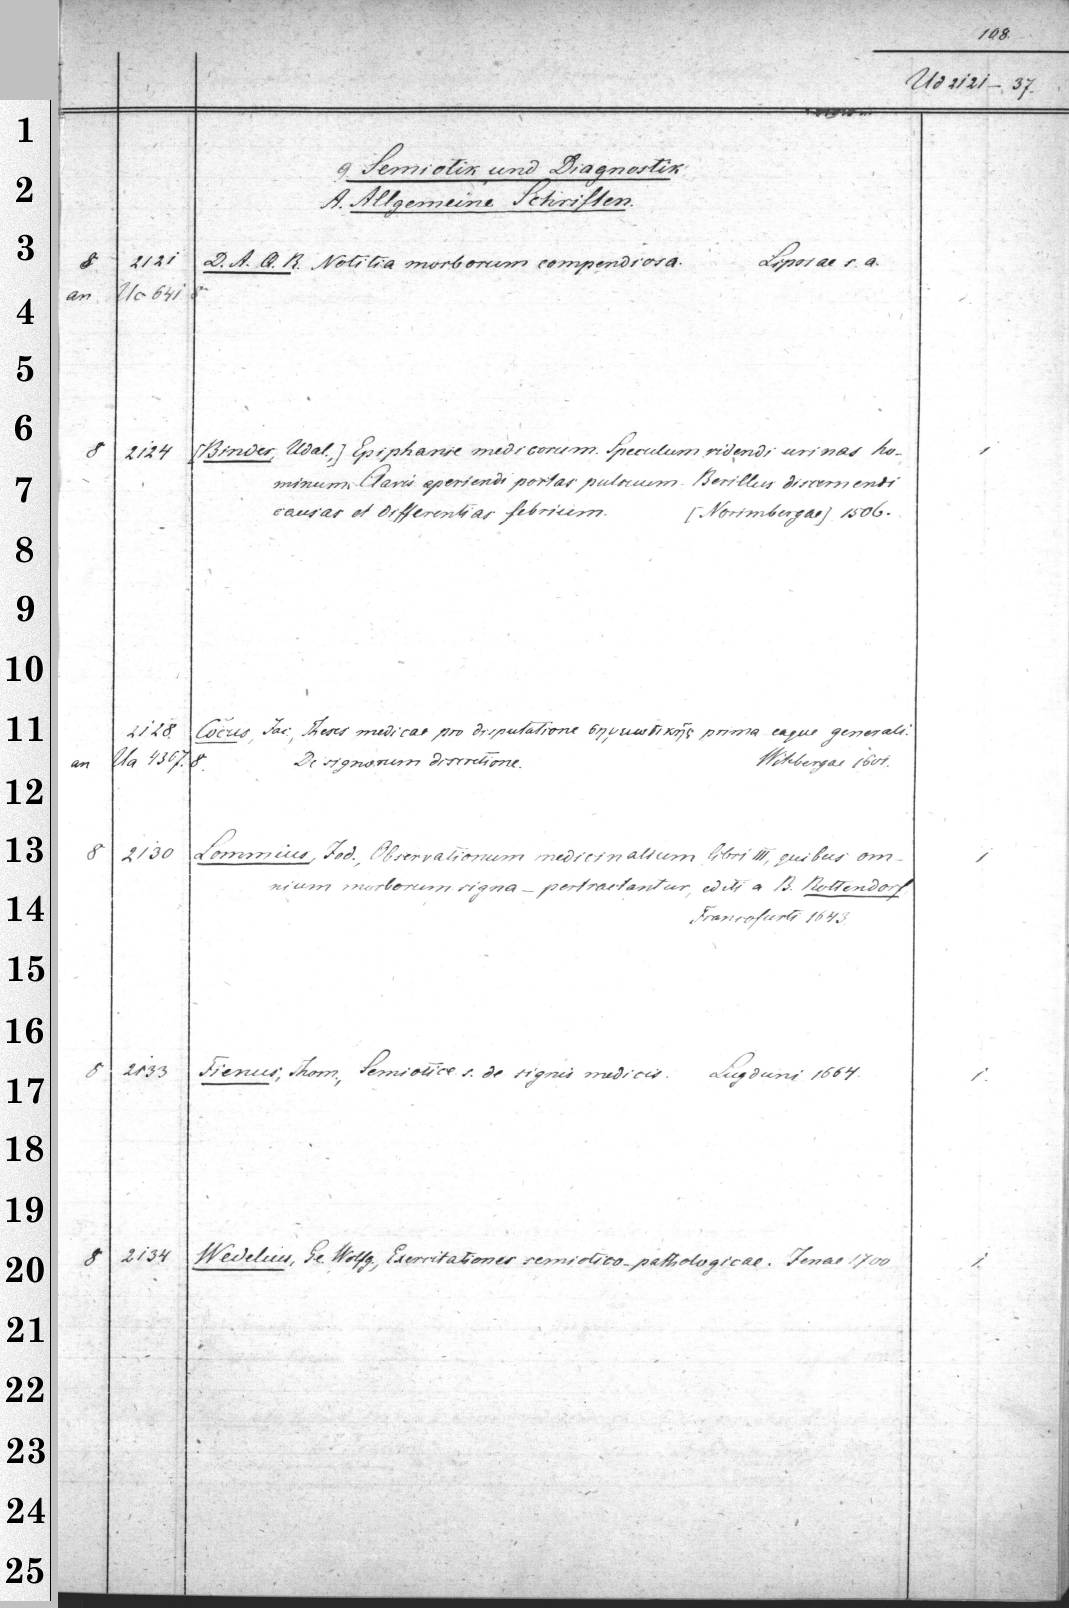 108.
Ud 2121 – 37.
9. Semiotik und Diagnostik
A. Allgemeine Schriften.
8 2121 D. A. Q. R. Notitia morborum compendiosa. Lipsiae s. a.
an Uc 641 8°
8 2124 [Binder, Udal.,] Epiphanie medicorum. Speculum videndi urinas ho- 1
minum. Clavis aperiendi portas pulsuum. Berillus discernendi
causas et differentias febrium. [Norimbergae] 1506.
2128. Cocus, Jac., Theses medicae pro disputatione σημειωτικῆς prima eaque generali.
an Ua 4367. 8. De signorum discretione. Witebergae 1601.
8 2130 Lommius, Jod., Observationum medicinalium libri III, quibus om- 1
nium morborum signa – pertractantur, editi a B. Rottendorf
Francofurti 1643.
8 2133 Fienus, Thom., Semiotice s. de signis medicis. Lugduni 1664. 1.
8 2134 Wedelius, Ge. Wolfg., Exercitationes semiotico-pathologicae. Jenae 1700 1.
1
2
3
4
5
6
7
8
9
10
11
12
13
14
15
16
17
18
19
20
21
22
23
24
25